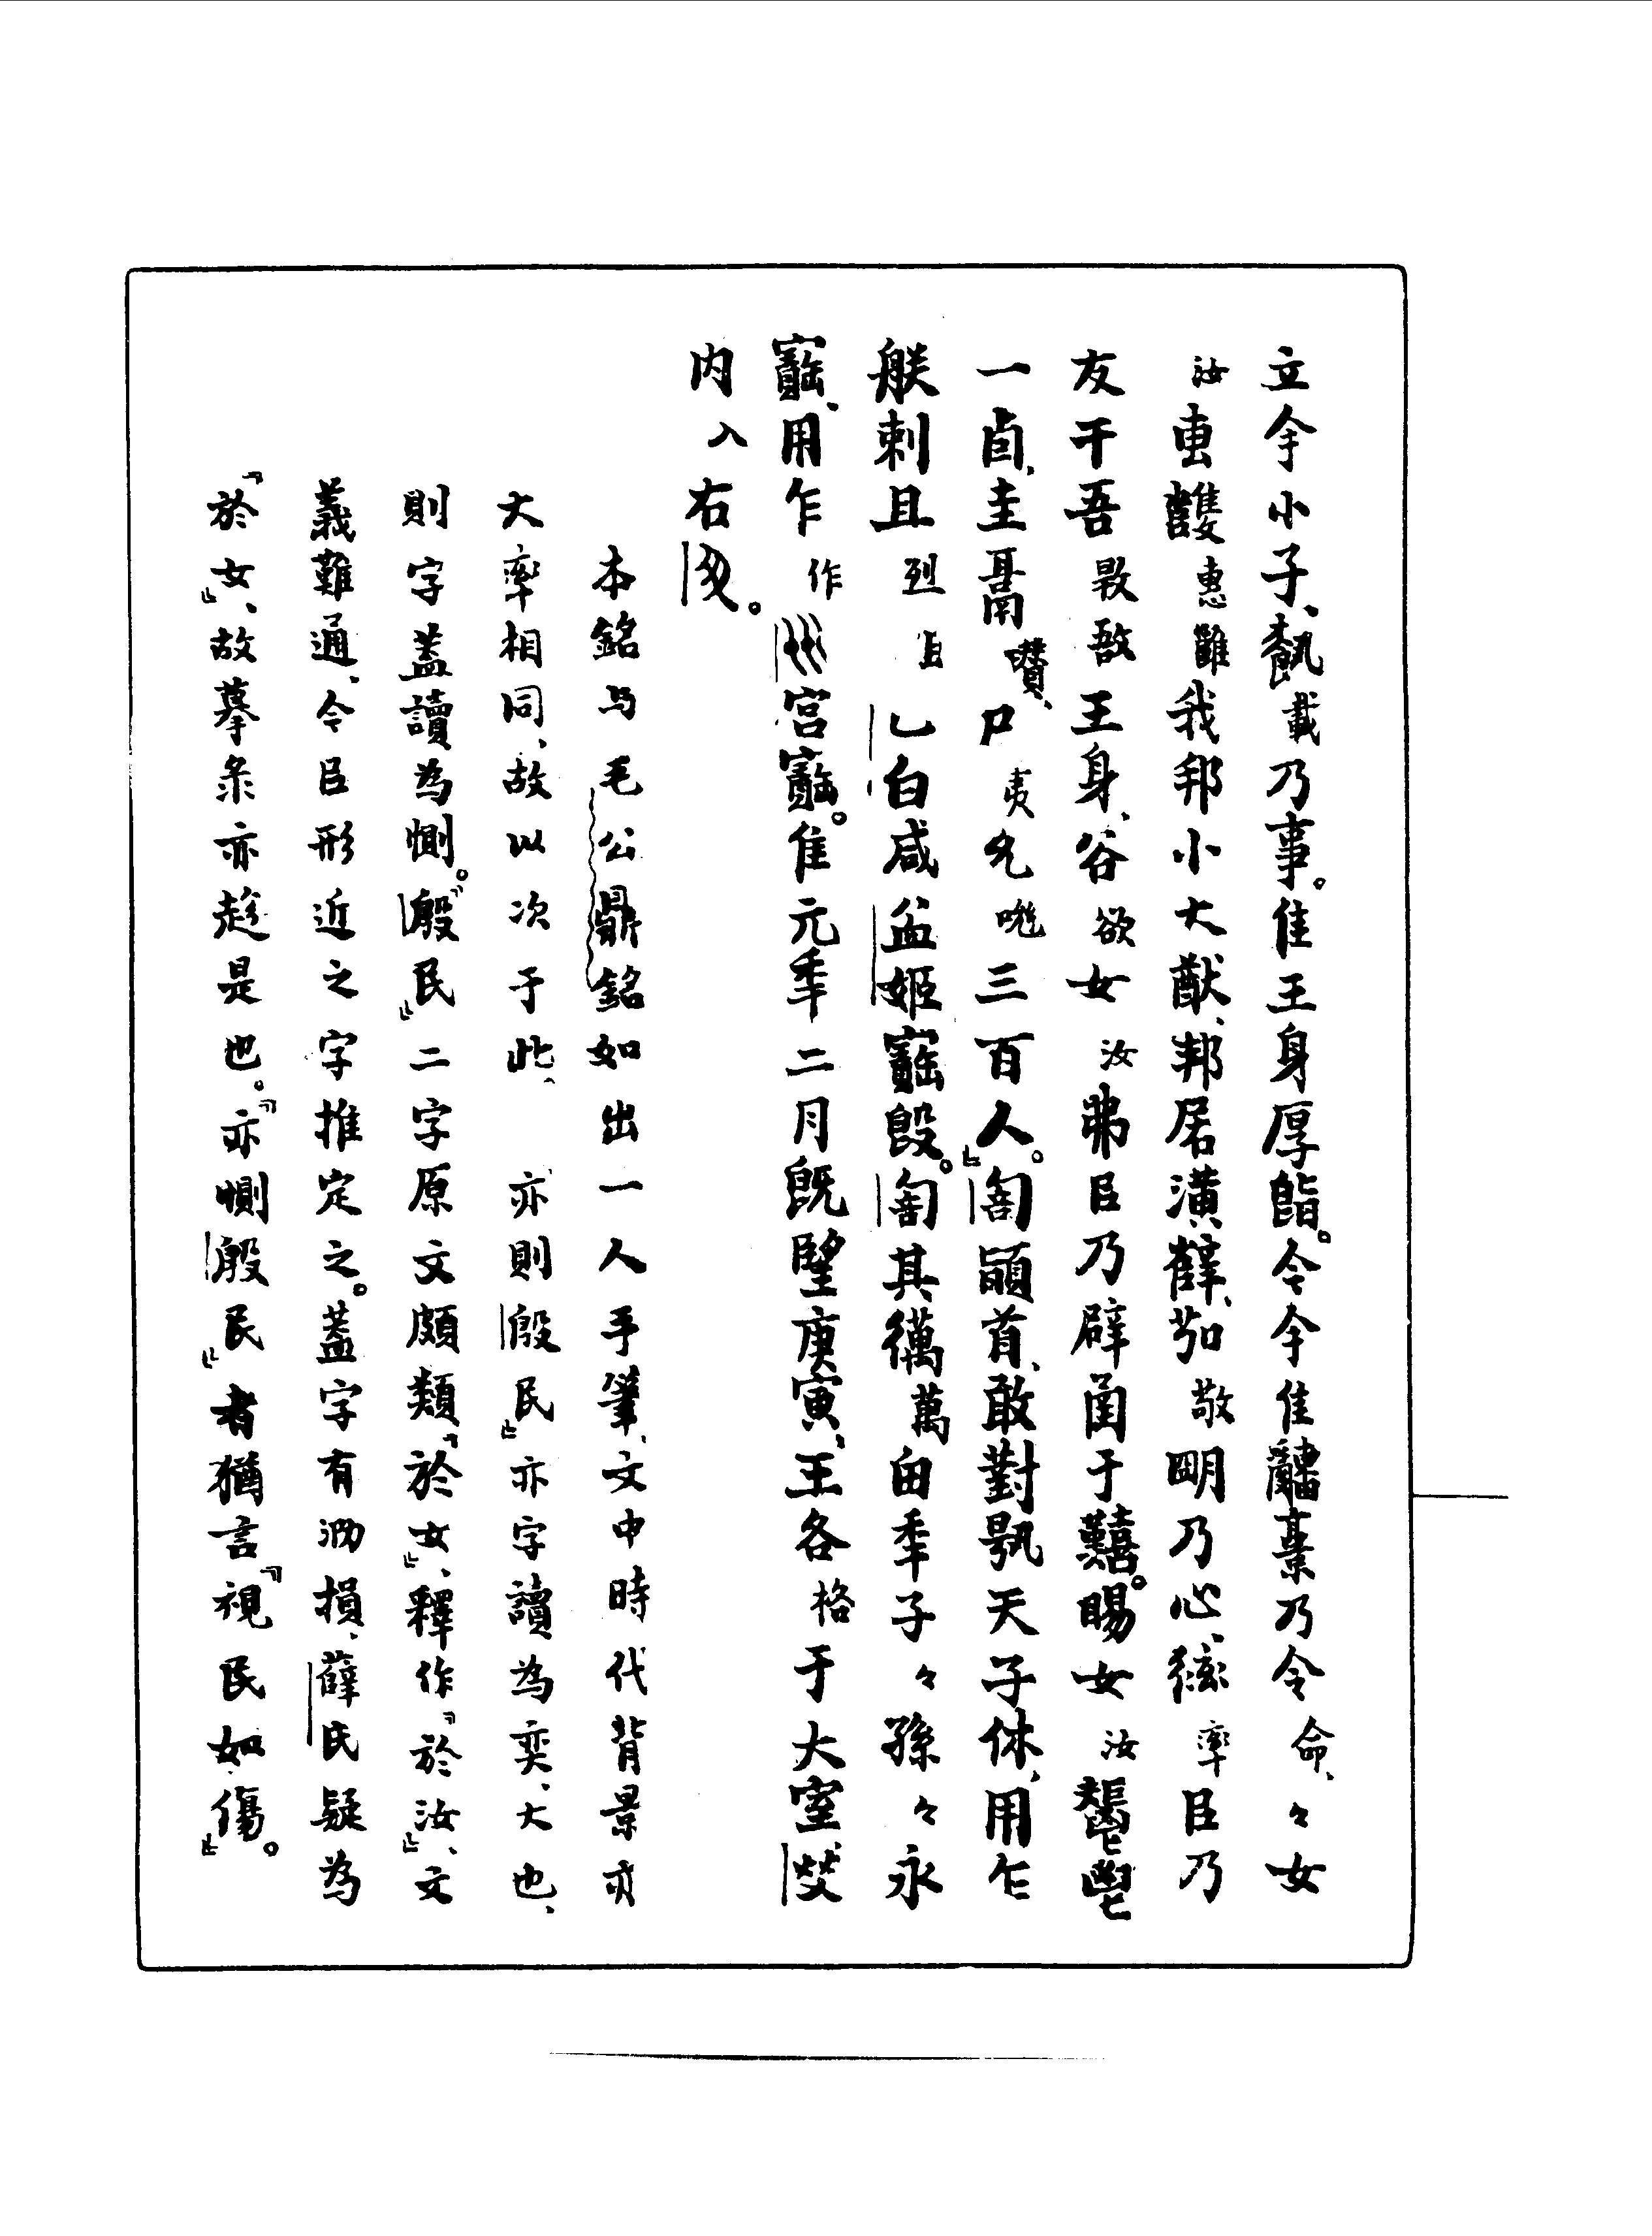 立余小子、載乃事。隹王身厚𩛥。今余隹䌛𢉩乃令命、々女
汝叀雝惠雝我邦小大猷、邦居潢辥、苟敬明乃心、𧗿率臣乃
友干吾敔王身、谷欲女汝弗臣乃辟圅于囏。賜女汝鬯
一卣、圭瓚、尸夷允三百人。』訇𩒨首、敢對𩰫天子休、用乍
朕剌且烈且乙白咸益姬寶𣪘。訇其萬萬由年子々孫々永
寶、用乍作宮寶。隹元年二月既朢庚寅、王各格于大室𤇾
内入右。
本銘与毛公鼎銘如出一人手筆、文中時代背景亦
大率相同、故以次于此、亦則殷民』亦字讀為奕、大也、
則字蓋讀為惻。『殷民』二字原文頗類『於女』、釋作『於汝』、文
義難通、今臣形近之字推定之。蓋字有泐損、薛氏疑為
『於女』、故摹錄亦趍是也。『亦惻殷民』者猶言『視民如傷』。